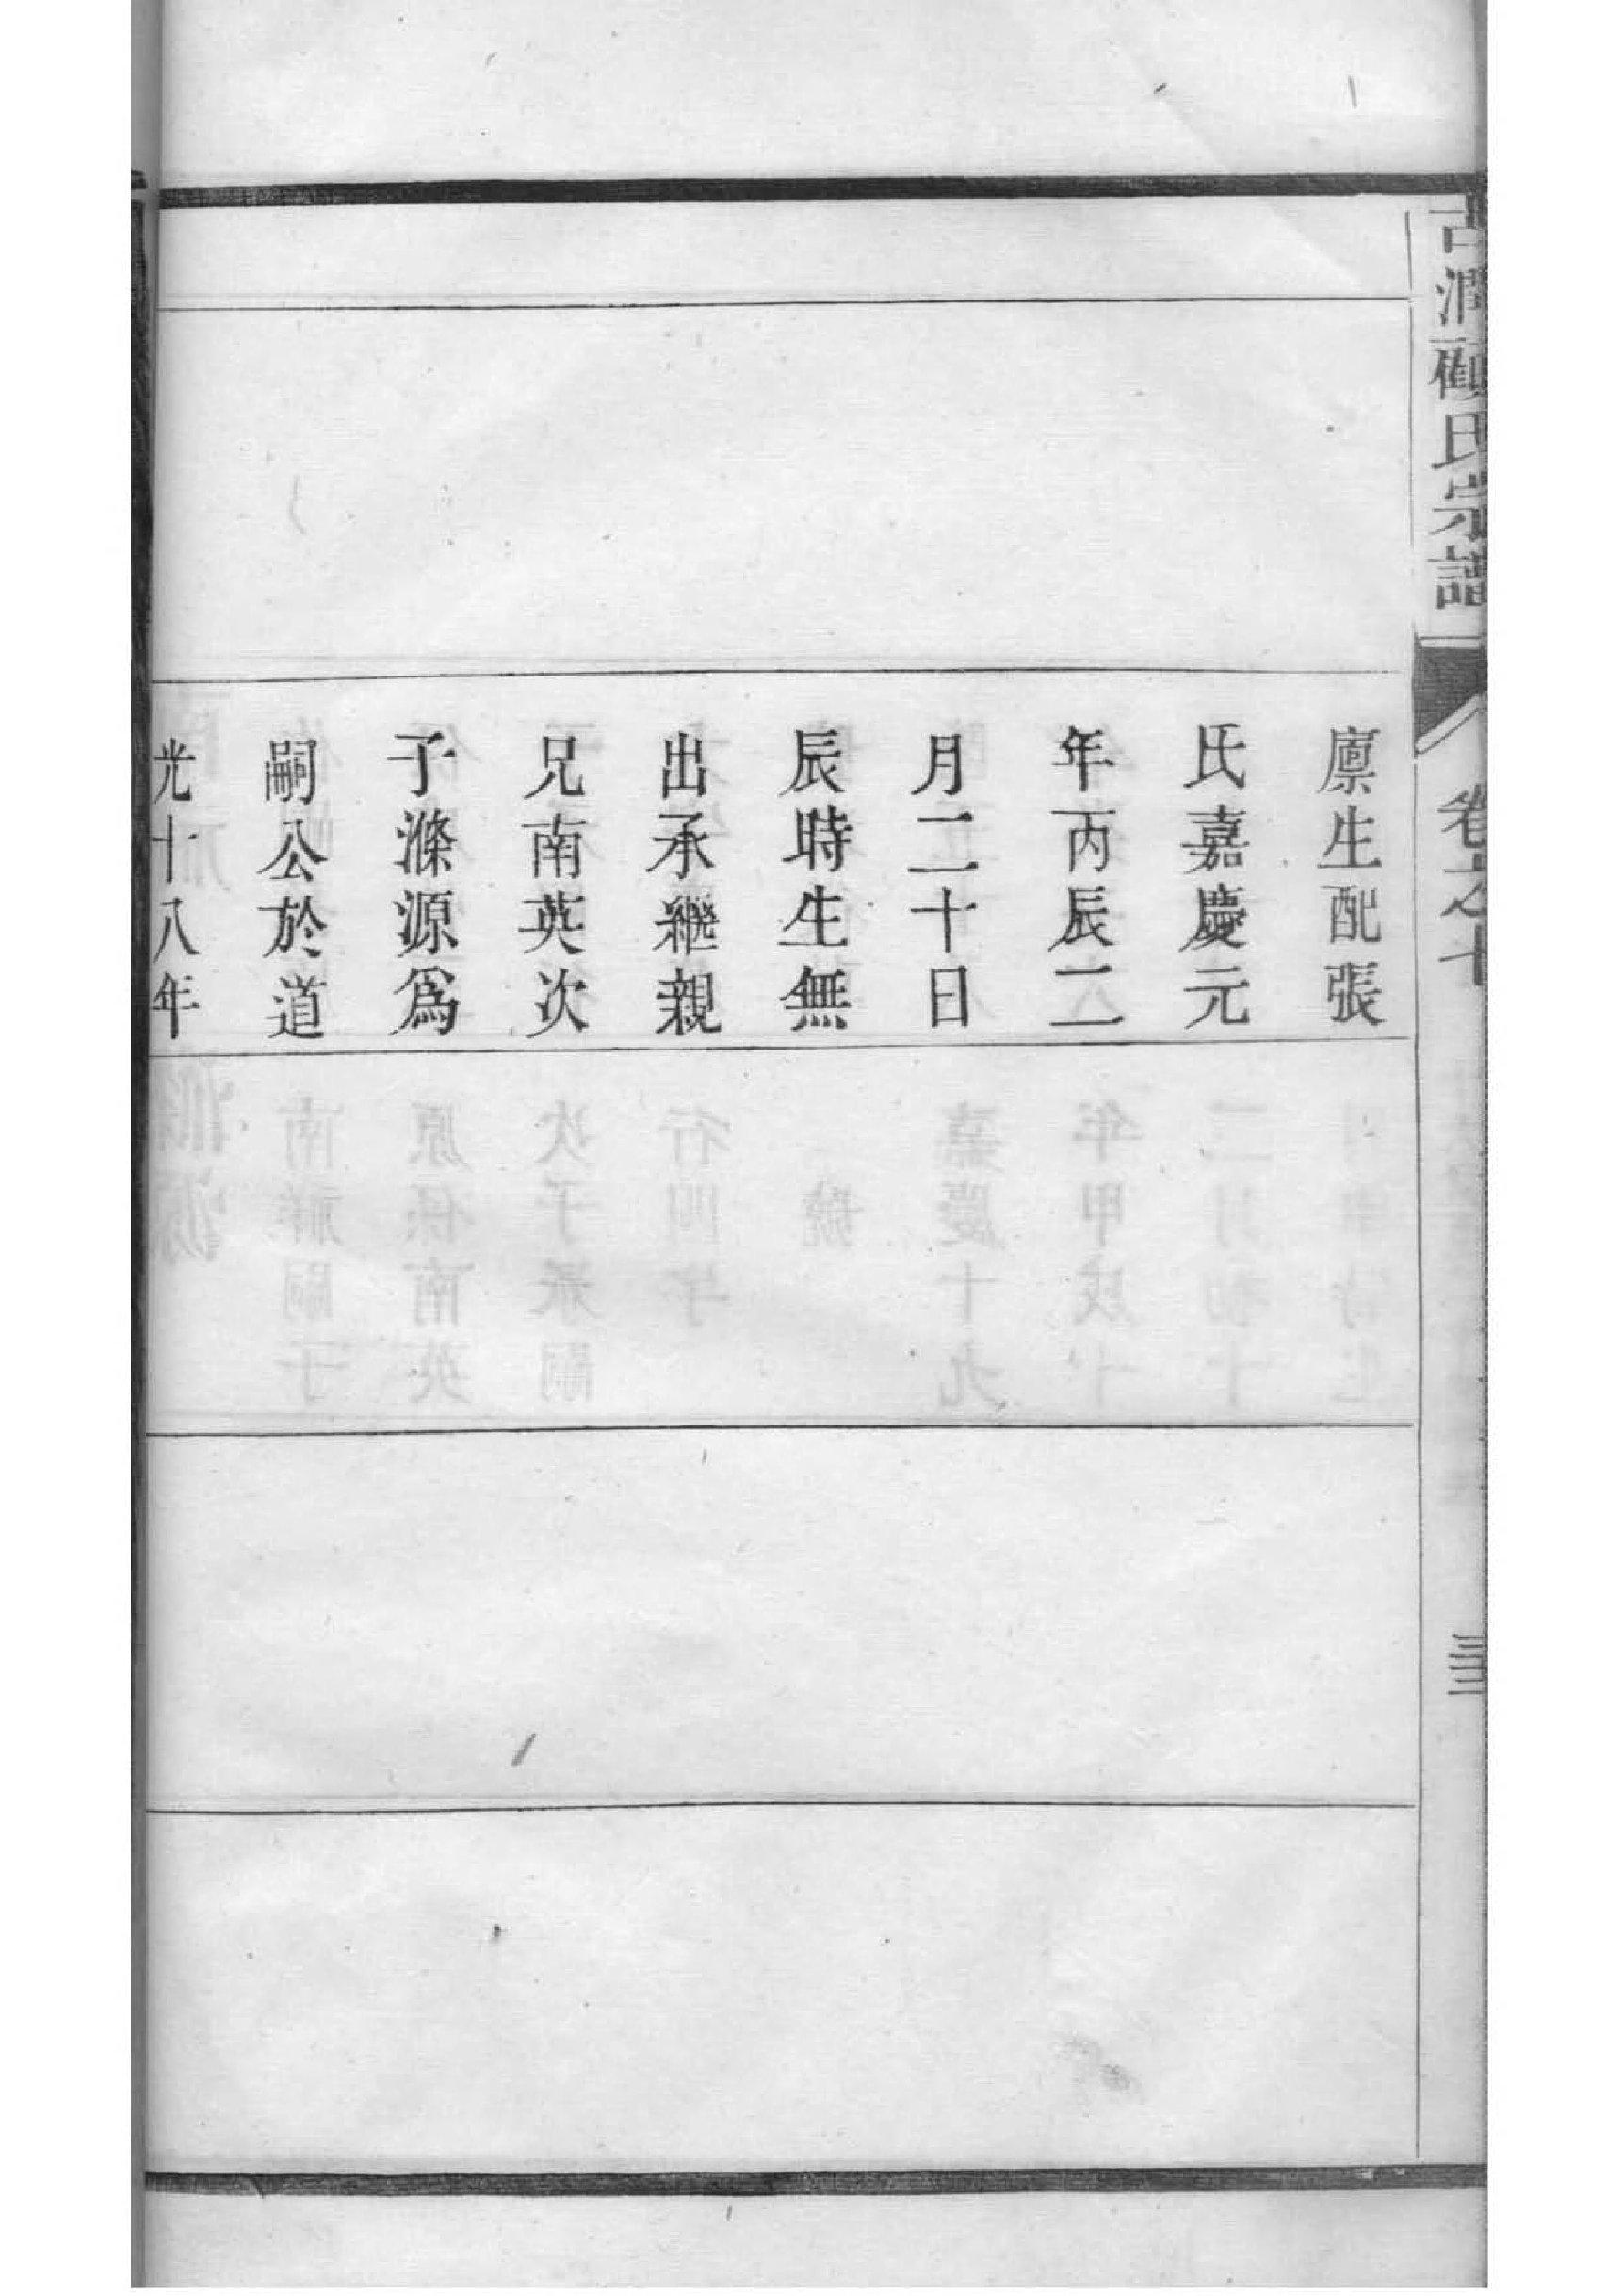 古潤顧氏宗譜
卷之十
三三
廪生配張
氏嘉慶元
年丙辰二
月二十日
辰時生無
出承繼親
兄南英次
子滌源爲
嗣公於道
光十八年